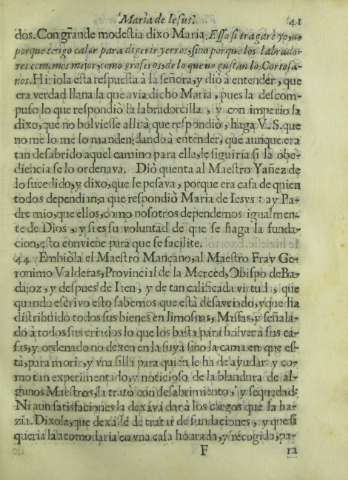 Maria de Iesus. 41
dos. Con grande modestia dixo Maria, Esso si tragarè yo, no
porque tengo calor para digerir yerros, sino porque los labrado-
res comemos mejor, como groseros, de lo que no gustan los Cortesa-
nos. Hiriola esta respuesta à la señora, y diò à entender, que
era verdad llana la que avia dicho Maria, pues la descom-
puso lo que respondiò la labradorcilla, y con imperio la
dixo, que no bolviesse allì à que respondiò, haga V.S. que
no me lo manden, dando à entender, que aunque era
tan desabrido aquel camino para ella, le siguiria si la obe-
diencia se lo ordenava. Diò quenta al Maestro Yañez de
lo sucedido, y dixo, que le pesava, porque era casa de quien
todos dependian, à que respondiò Maria de Iesvs: ay Pa-
dre mio, que ellos, como nosotros dependemos igualmen-
te de Dios, y si es su voluntad de que se haga la funda-
cion, esto conviene para que se facilite.
44. Embiòla el Maestro Mançano, al Maestro Fray Ge-
ronimo Valderas, Provincial de la Merced, Obispo de Ba-
dajoz, y despues de Iaen, y de tan calificada virtud, que
quando escrivo esto sabemos que està desaviado, y que ha
distribuido todos sus bienes en limosnas, Missas, y señala-
do à todos sus criados lo que les basta para bolver à sus ca-
sas, y ordenado no dexen en la suya sino la cama en que es-
ta, para morir, y vna silla para quien le ha de ayudar: y co-
mo tan experimentado, y noticioso de la blandura de al-
gunos Maestros, la tratò con desabrimiento, y sequedad:
Ni aun satisfaciones la dexava dar à los cargos que la ha-
zia. Dixola, que dexasse de tratar de fundaciones, y que si
queria la acomodaria en vna casa honrada, y recogida, pa-
F ra